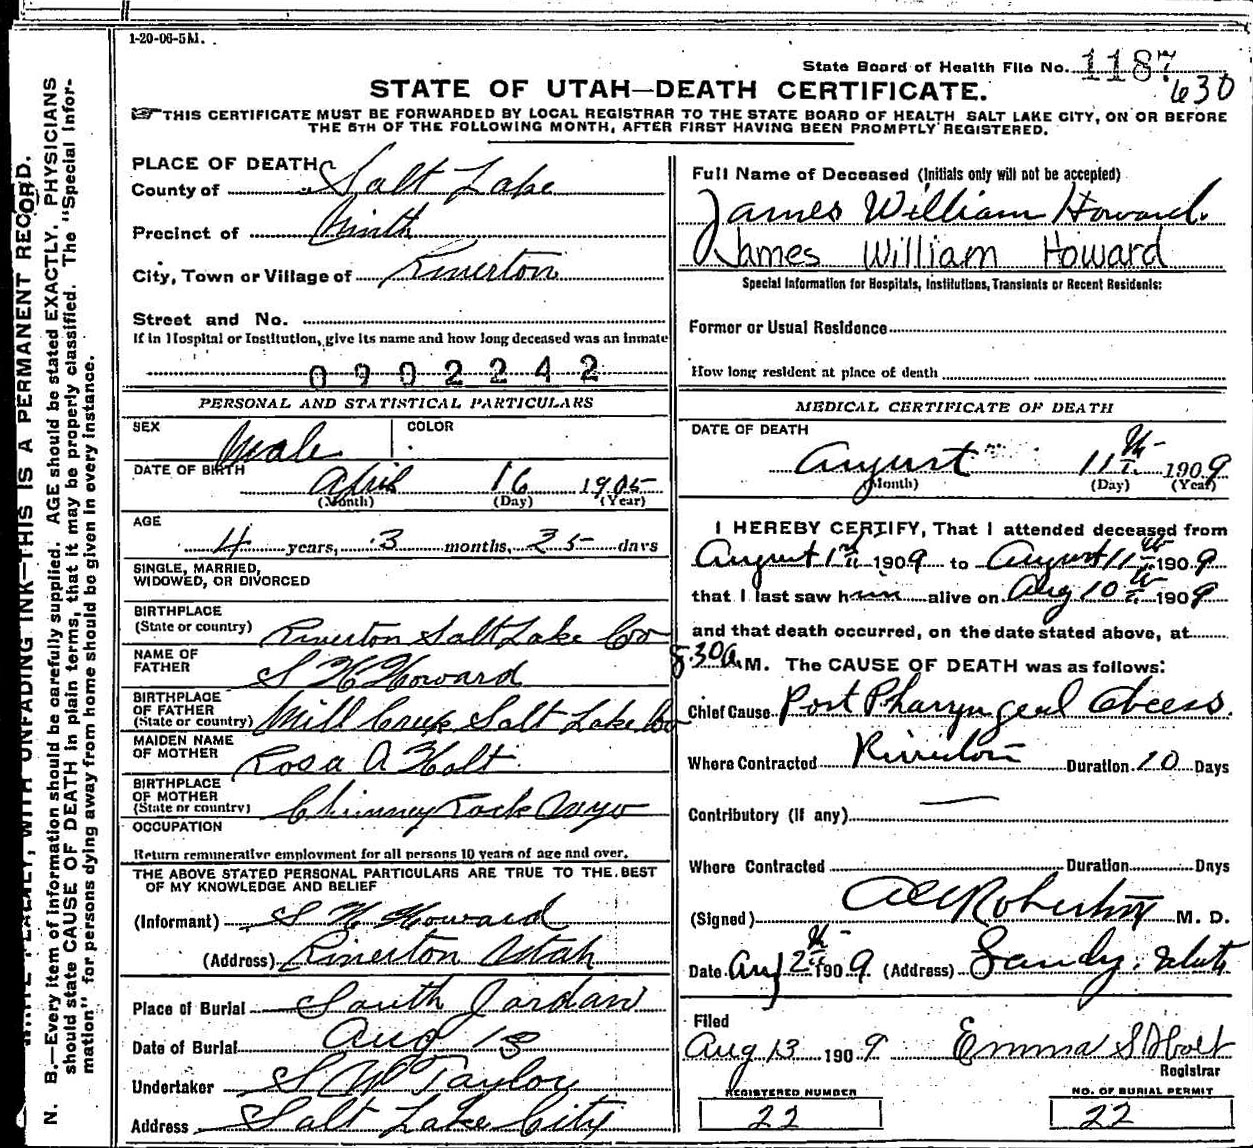 1-20-06-5M.
State Board of Health File No. 1187
630
STATE OF UTAH—DEATH CERTIFICATE.
THIS CERTIFICATE MUST BE FORWARDED BY LOCAL REGISTRAR TO THE STATE BOARD OF HEALTH SALT LAKE CITY, ON OR BEFORE
THE 5TH OF THE FOLLOWING MONTH, AFTER FIRST HAVING BEEN PROMPTLY REGISTERED.
PLACE OF DEATH
County of Salt Lake
Precinct of Ninth
City, Town or Village of Riverton
Street and No.
If in Hospital or Institution, give its name and how long deceased was an inmate
0902242
PERSONAL AND STATISTICAL PARTICULARS
SEX Male COLOR
DATE OF BIRTH
April 16 1905
(Month) (Day) (Year)
AGE
4 years, 3 months, 25 days
SINGLE, MARRIED,
WIDOWED, OR DIVORCED
BIRTHPLACE
(State or country) Riverton Salt Lake Co
NAME OF
FATHER S W Howard
BIRTHPLACE
OF FATHER
(State or country) Mill Creek Salt Lake Co
MAIDEN NAME
OF MOTHER Rosa A Holt
BIRTHPLACE
OF MOTHER
(State or country) Chimney Rock Wyo
OCCUPATION
Return remunerative employment for all persons 10 years of age and over.
THE ABOVE STATED PERSONAL PARTICULARS ARE TRUE TO THE BEST
OF MY KNOWLEDGE AND BELIEF
(Informant) S W Howard
(Address) Riverton Utah
Place of Burial South Jordan
Date of Burial Aug 13
Undertaker S M Taylor
Address Salt Lake City
Full Name of Deceased (Initials only will not be accepted)
James William Howard.
James William Howard
Special Information for Hospitals, Institutions, Transients or Recent Residents:
Former or Usual Residence
How long resident at place of death
MEDICAL CERTIFICATE OF DEATH
DATE OF DEATH
August 11th 1909
(Month) (Day) (Year)
I HEREBY CERTIFY, That I attended deceased from
August 1 1909 to August 11th 1909
that I last saw him alive on Aug 10th 1909
and that death occurred, on the date stated above, at
8.30 A.M. The CAUSE OF DEATH was as follows:
Chief Cause Post Pharyngeal Abcess.
Where Contracted Riverton Duration 10 Days
Contributory (If any) —
Where Contracted Duration Days
(Signed) Robertson M. D.
Date Aug 1909. (Address) Sandy, Utah
Filed
Aug 13 1909 Emma S Holt
Registrar
REGISTERED NUMBER
22
NO. OF BURIAL PERMIT
22
WITH UNFADING INK—THIS IS A PERMANENT RECORD.
N. B.—Every item of information should be carefully supplied. AGE should be stated EXACTLY. PHYSICIANS
should state CAUSE OF DEATH in plain terms, that it may be properly classified. The "Special Infor-
mation" for persons dying away from home should be given in every instance.